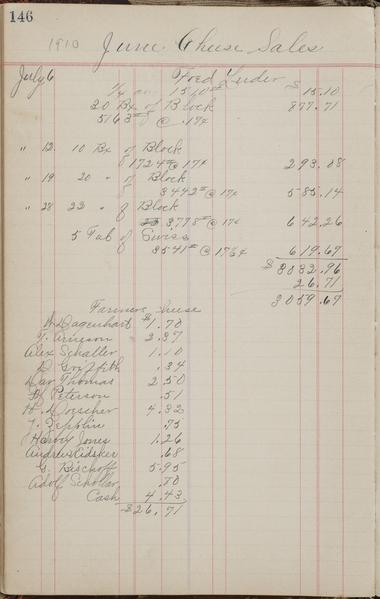 146
1910 June Cheese Sales
July 6 Fred
1/4 on 1510# $ 15.10
30 Bx of Block 877.71
5163# @ .17¢
" 12 10 Bx of Block
1724# @ 17¢ 293.08
" 19 20 " of Block
3442# @ 17¢ 585.14
" 28 22 " of Block
3778# @ 17¢ 642.26
5 Tub of Swiss
3541# @ 17½¢ 619.67
$3032.96
26.71
3059.67
Farmers Cheese
Dagenhart $1.70
T. Arneson 2.37
Alex Schaller 1.10
D. Griffith .34
Dav Thomas 2.50
Peterson .51
H. Dorscher 4.32
T. Zepplin .75
Harvy Jones 1.26
Andrew Kidsker .68
G. Bischoff 5.95
Adolf Schollar .70
Cash 4.43
$26.71